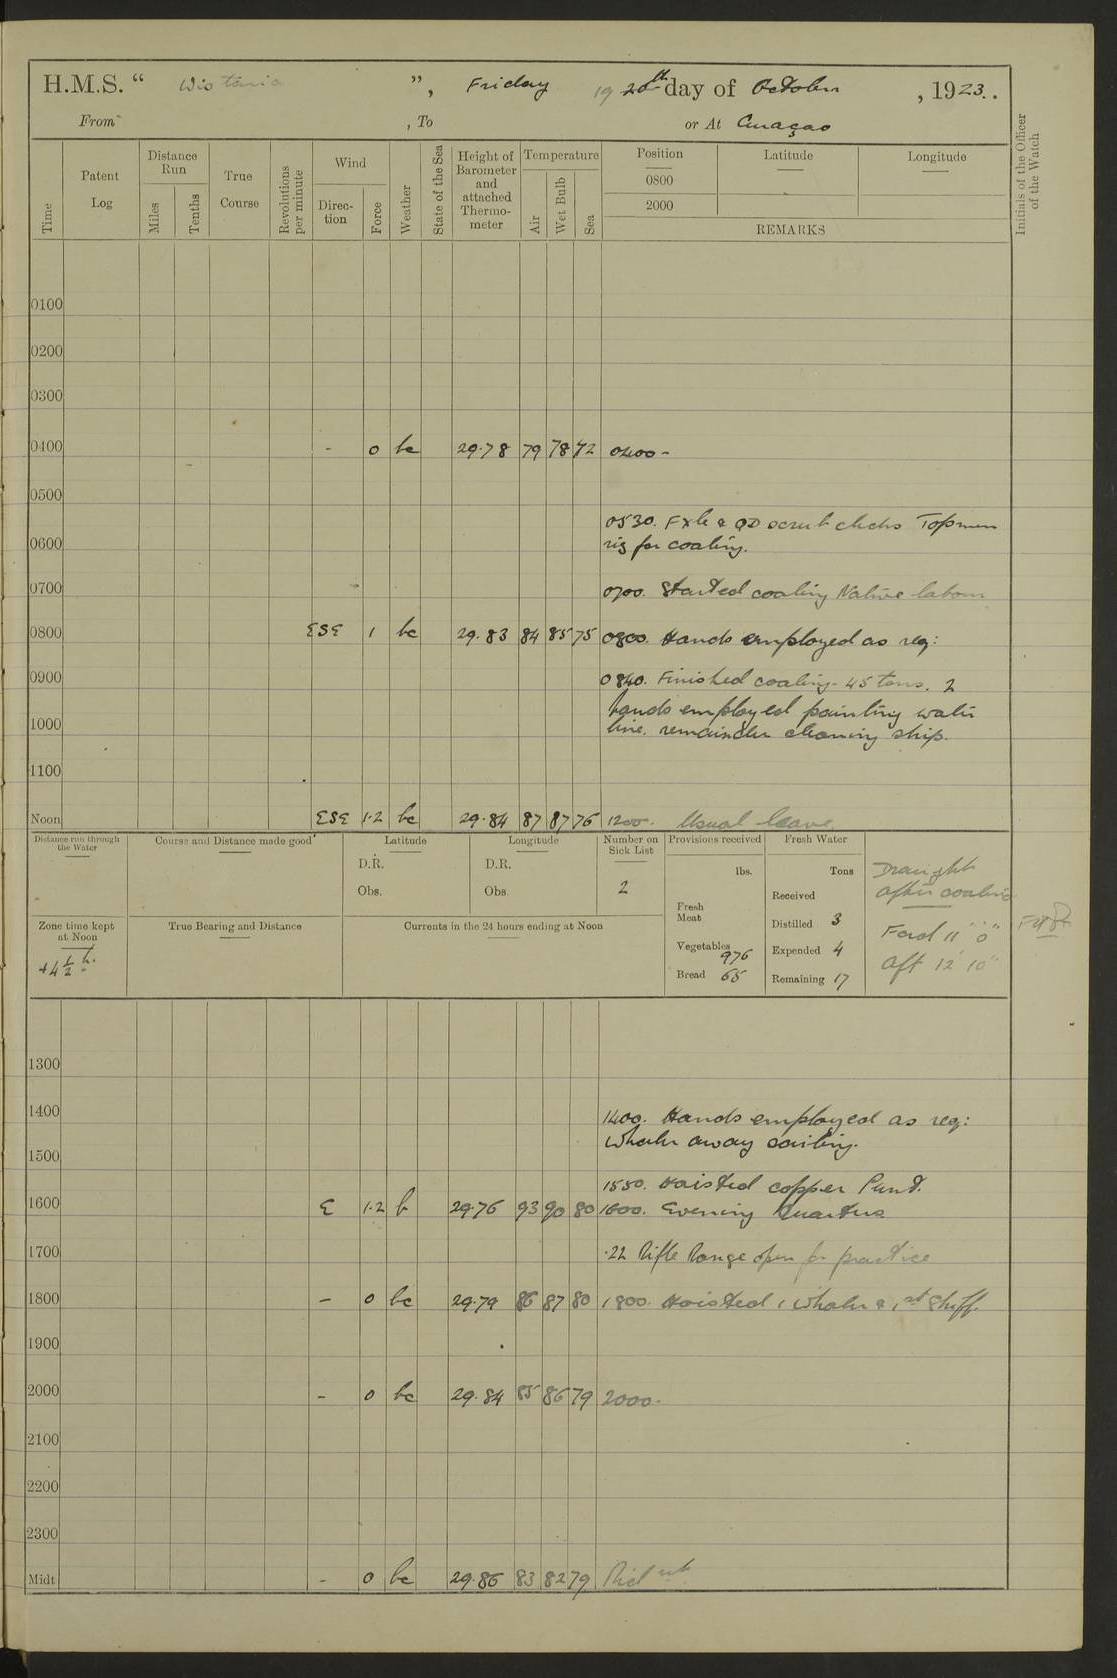 H.M.S. “ Wistaria ”, Friday 19 20th day of October, 1923.
From , To or At Curaçao
Time
Patent Log
Distance Run
Miles
Tenths
True Course
Revolutions per minute
Wind
Direction
Force
Weather
State of the Sea
Height of Barometer and attached Thermometer
Temperature
Air
Wet Bulb
Sea
Position
Latitude
Longitude
0800
2000
REMARKS
Initials of the Officer of the Watch
0100
0200
0300
0400 - 0 bc 29.78 79 78 72 0400 -
0500
0530. Fxle & QD scrub decks Topmen
0600 rig for coaling.
0700 0700. Started coaling Native labour
0800 ESE 1 bc 29.83 84 85 75 0800. Hands employed as req:
0900 0840. Finished coaling - 45 tons. 2
hands employed painting water
1000 line. remainder cleaning ship.
1100
Noon ESE 1.2 bc 29.84 87 87 76 1200. Usual leave
Distance run through the Water
Course and Distance made good
Latitude
D.R.
Obs.
Longitude
D.R.
Obs.
Number on Sick List
2
Provisions received
lbs.
Fresh Meat
Vegetables 976
Bread 65
Fresh Water
Tons
Received
Distilled 3
Expended 4
Remaining 17
Draught
after coaling
Ford 11' 0"
Aft 12' 10"
Zone time kept at Noon
+4½ h.
True Bearing and Distance
Currents in the 24 hours ending at Noon
1300
1400 1400. Hands employed as req:
Whaler away sailing.
1500
1550. Hoisted copper Punt.
1600 E 1.2 b 29.76 93 90 80 1600. Evening Quarters
1700 .22 Rifle Range open for practice
1800 - 0 bc 29.79 86 87 80 1800. Hoisted 1 Whaler & 1st Skiff.
1900
2000 - 0 bc 29.84 85 86 79 2000.
2100
2200
2300
Midt - 0 bc 29.86 83 82 79